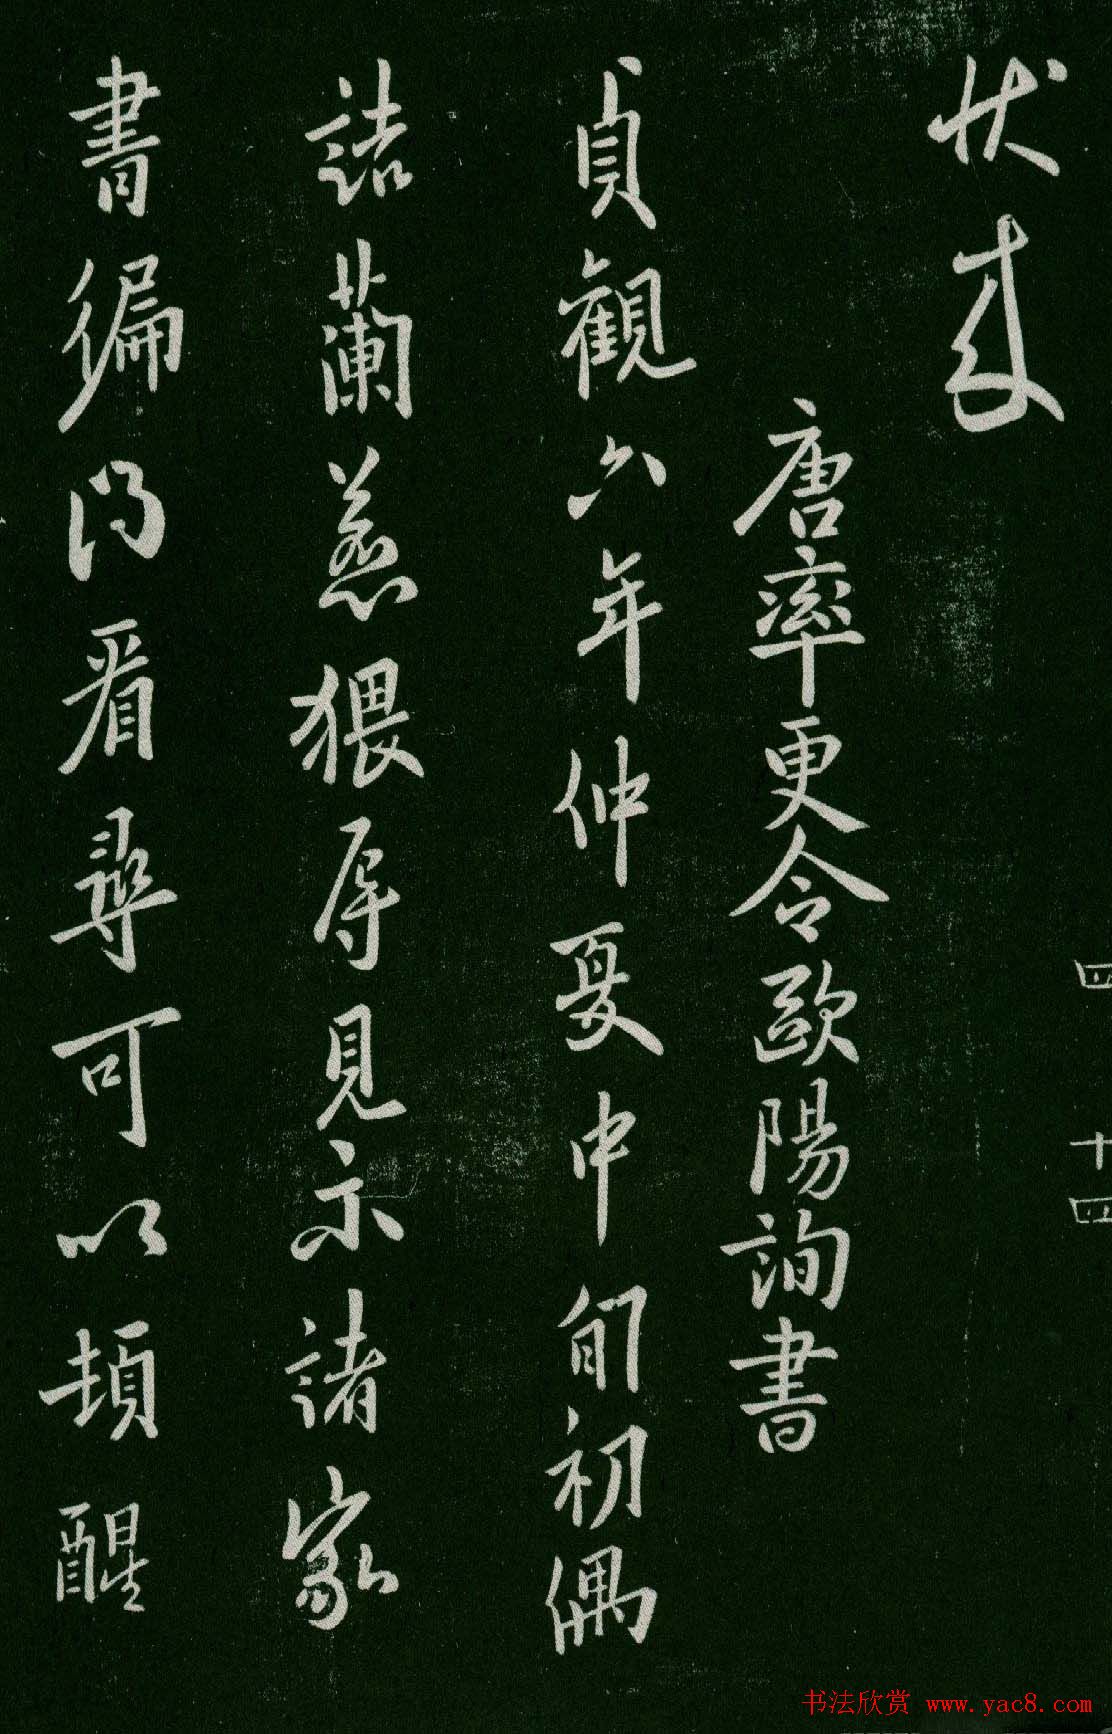 四 十四
状
唐率更令歐陽詢書
貞觀六年仲夏中旬初偶
詣蘭慈猥辱見示諸家
書徧得看尋可以頓醒
书法欣赏 www.yac8.com